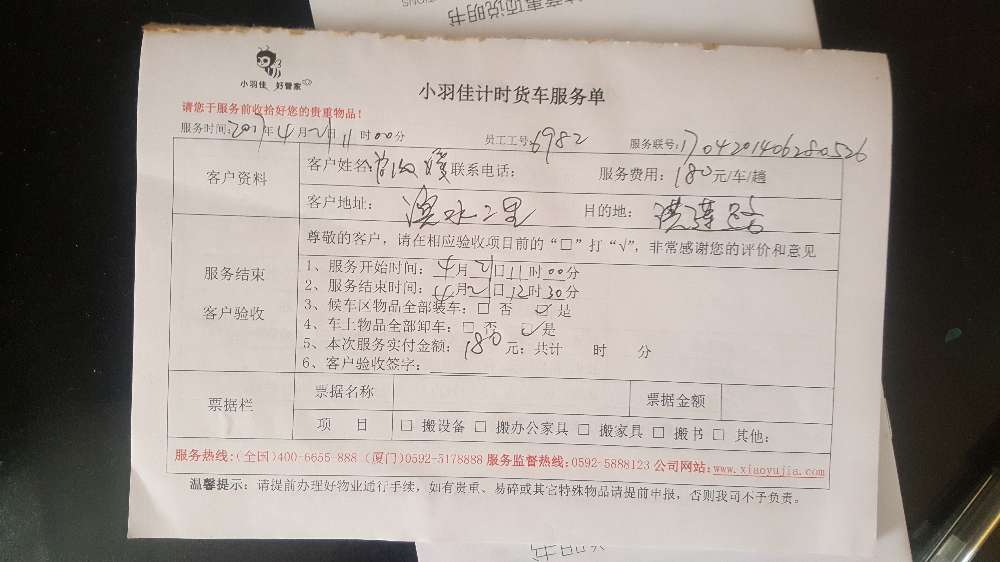 意事项说明书
小羽佳 好管家
小羽佳计时货车服务单
请您于服务前收拾好您的贵重物品!
服务时间:2017年4月21日11时00分 员工工号:6982 服务联号:1704201406280526
客户资料
客户姓名: 联系电话: 服务费用:180元/车/趟
客户地址: 滨水二里 目的地: 洪莲路
尊敬的客户,请在相应验收项目前的“□”打“√”,非常感谢您的评价和意见
服务结束
客户验收
1、服务开始时间:4月21日11时00分
2、服务结束时间:4月21日12时30分
3、候车区物品全部装车:□ 否 ☑ 是
4、车上物品全部卸车:□ 否 ☑ 是
5、本次服务实付金额:180元;共计 时 分
6、客户验收签字:
票据栏
票据名称 票据金额
项 目 □ 搬设备 □ 搬办公家具 □ 搬家具 □ 搬书 □ 其他:
服务热线:(全国)400-6655-888 (厦门)0592-5178888 服务监督热线:0592-5888123 公司网站:www.xiaoyujia.com
温馨提示:请提前办理好物业通行手续,如有贵重、易碎或其它特殊物品请提前申报,否则我司不予负责。